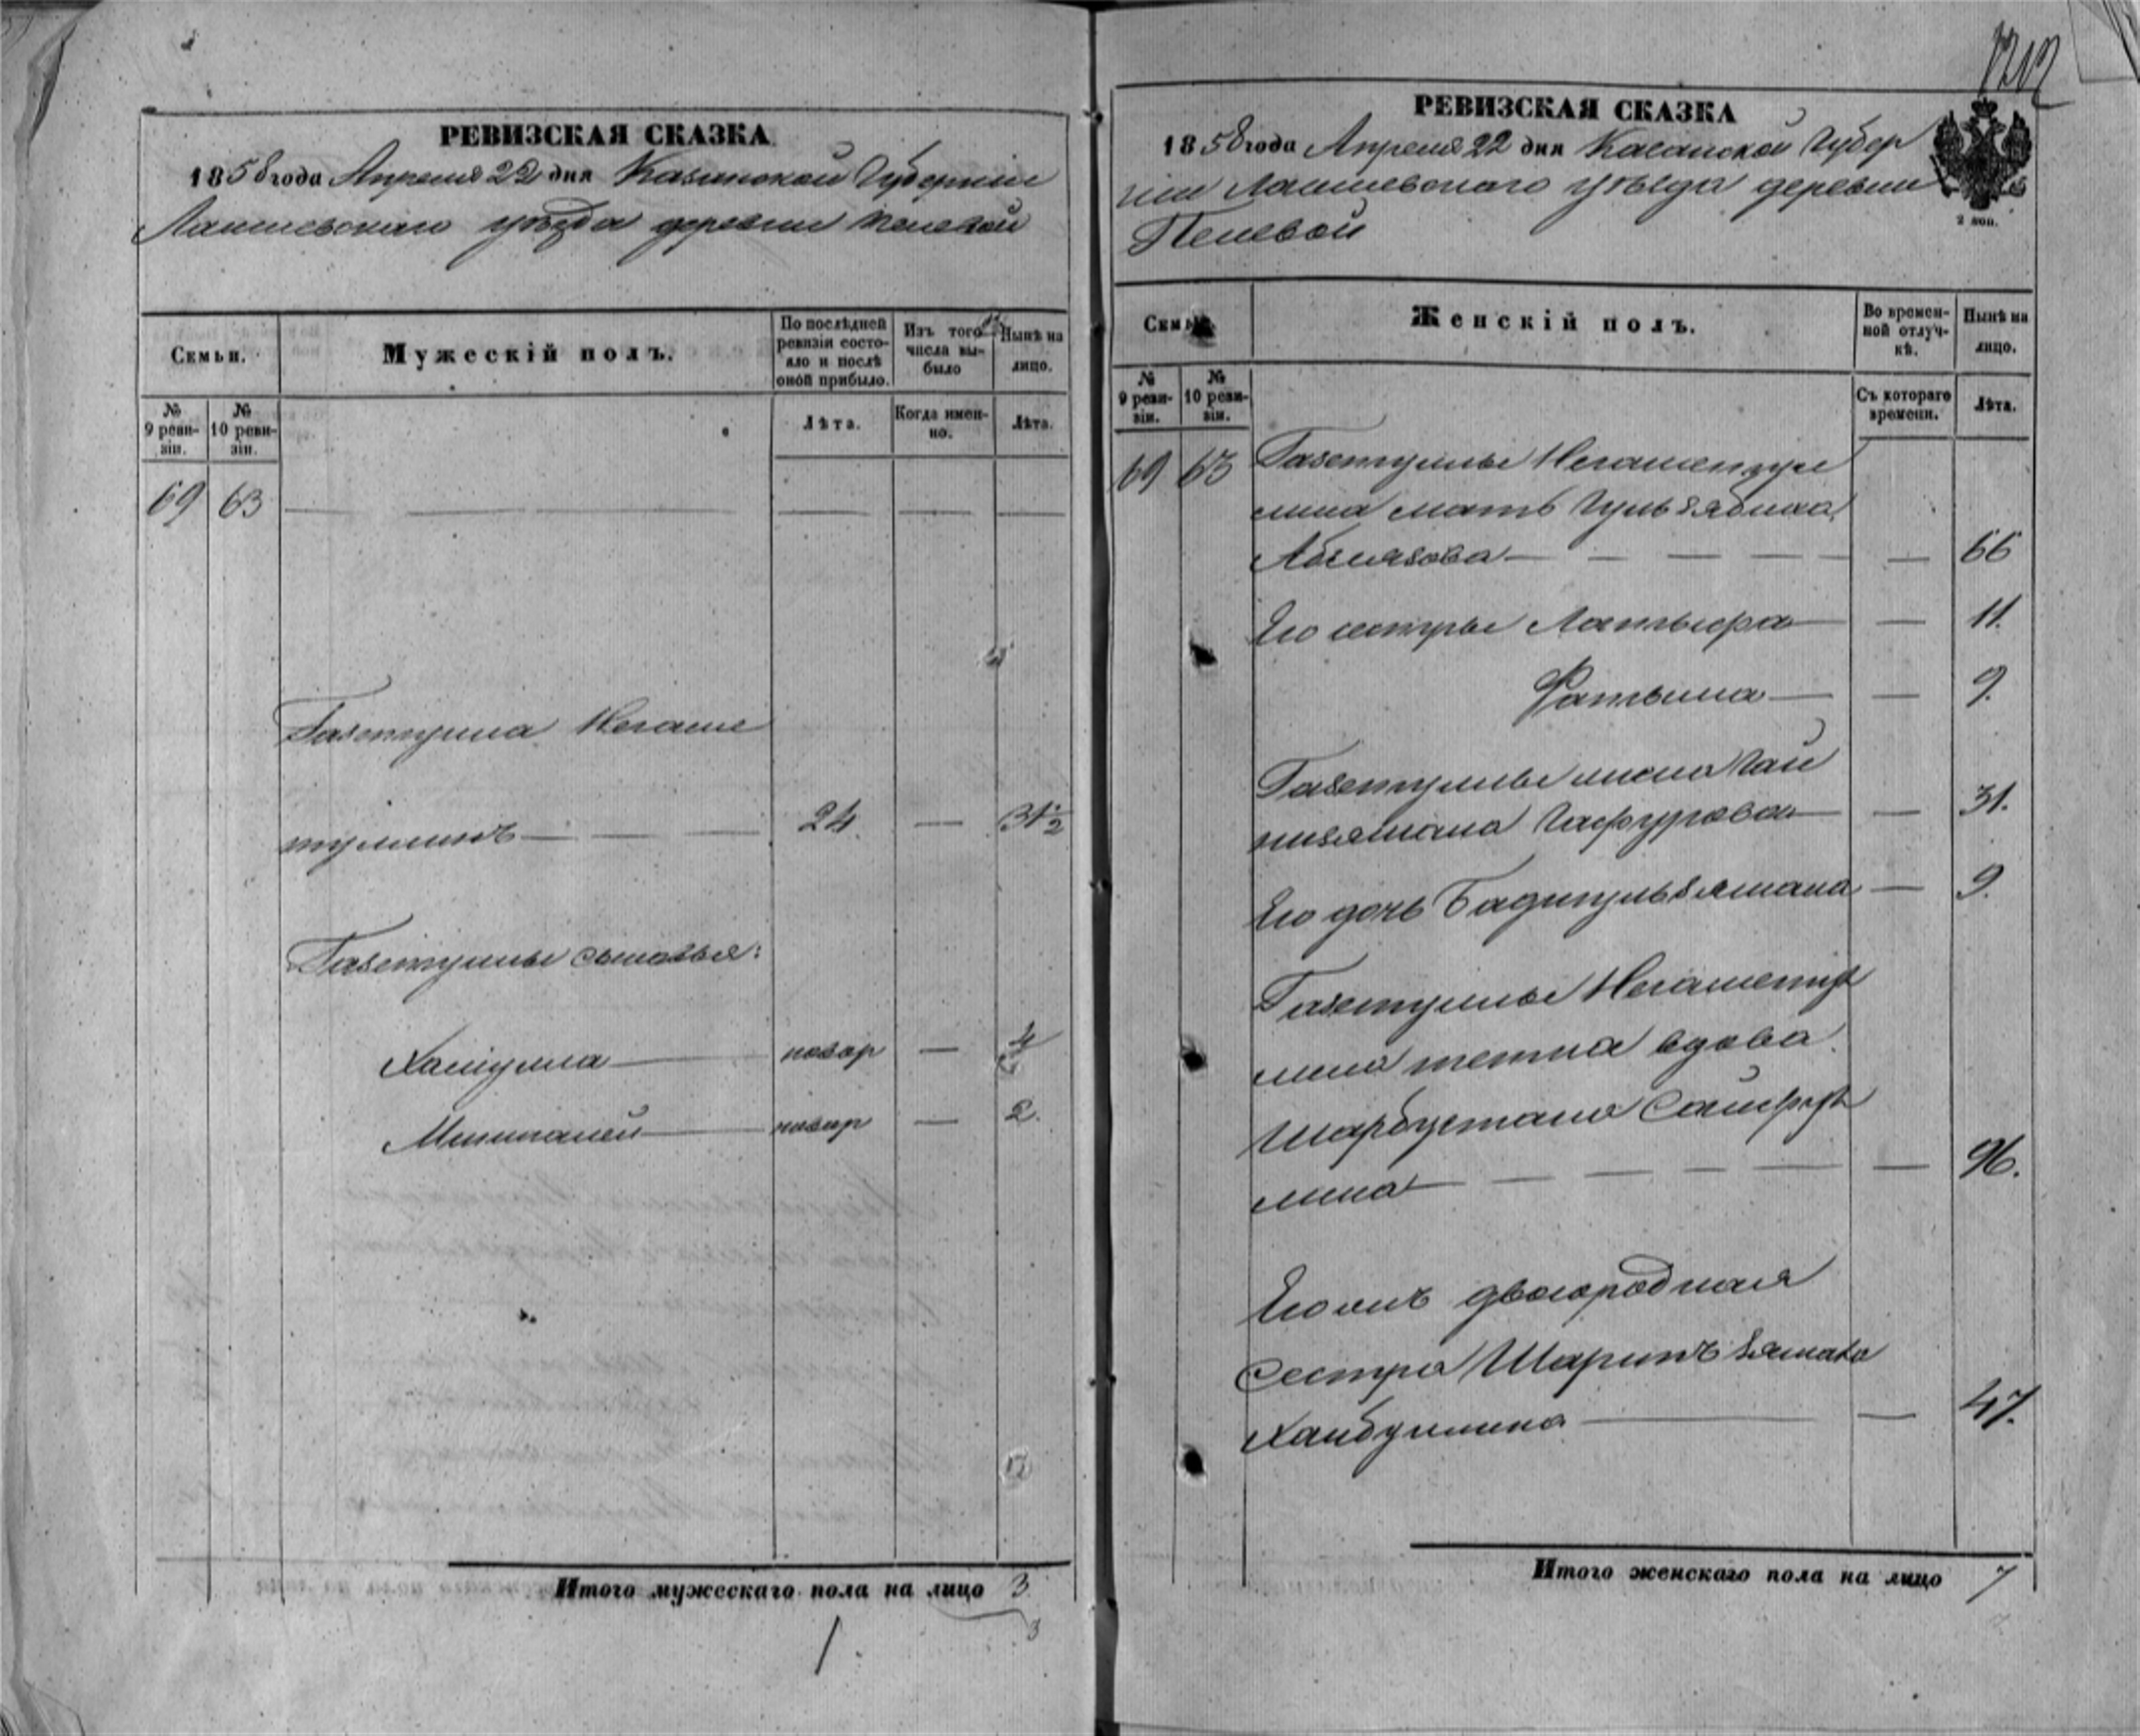 РЕВИЗСКАЯ СКАЗКА
1858 года Апреля 22 дня Казанской Губернии
Лаишевскаго уѣзда деревни Пелевой
Семьи.
Мужескій полъ.
По послѣдней ревизіи состояло и послѣ оной прибыло.
Изъ того числа выбыло
Нынѣ на лицо.
№ 9 ревизіи.
№ 10 ревизіи.
Лѣта.
Когда именно.
Лѣта.
69 63 — — — — — —
Газетулла Негаме
туллинъ — — 24. — 31½
Газетуллы сыновья:
Хайулла — новор — 4
Миннгалей — новор — 2.
Итого мужескаго пола на лицо 3
3
1.
РЕВИЗСКАЯ СКАЗКА
1858 года Апреля 22 дня Казанской Губер
нии Лаишевскаго уѣзда деревни
Пелевой
2 коп.
Женскій полъ.
Во временной отлучкѣ.
Нынѣ на лицо.
№ 9 ревизіи.
№ 10 ревизіи.
Съ котораго времени.
Лѣта.
69 63 Газетуллы Негаметул
лина мать Гульзябида
— — — — — 66
Его сестры — — 11.
Фатыма — — 9.
Газетуллы жена
Гафурова — — 31.
Его дочь Бадигульзямала — 9.
Газетуллы Негаметул
лина тетка вдова
Шарбустана Сайфул
лина — — — — — 96.
Его же двоюродная
сестра
Хайбуллина — — 47.
Итого женскаго пола на лицо 7